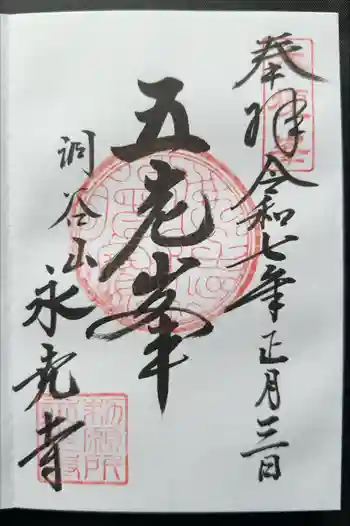 奉拝
令和七年正月三日
五老峯
洞谷山
永光寺